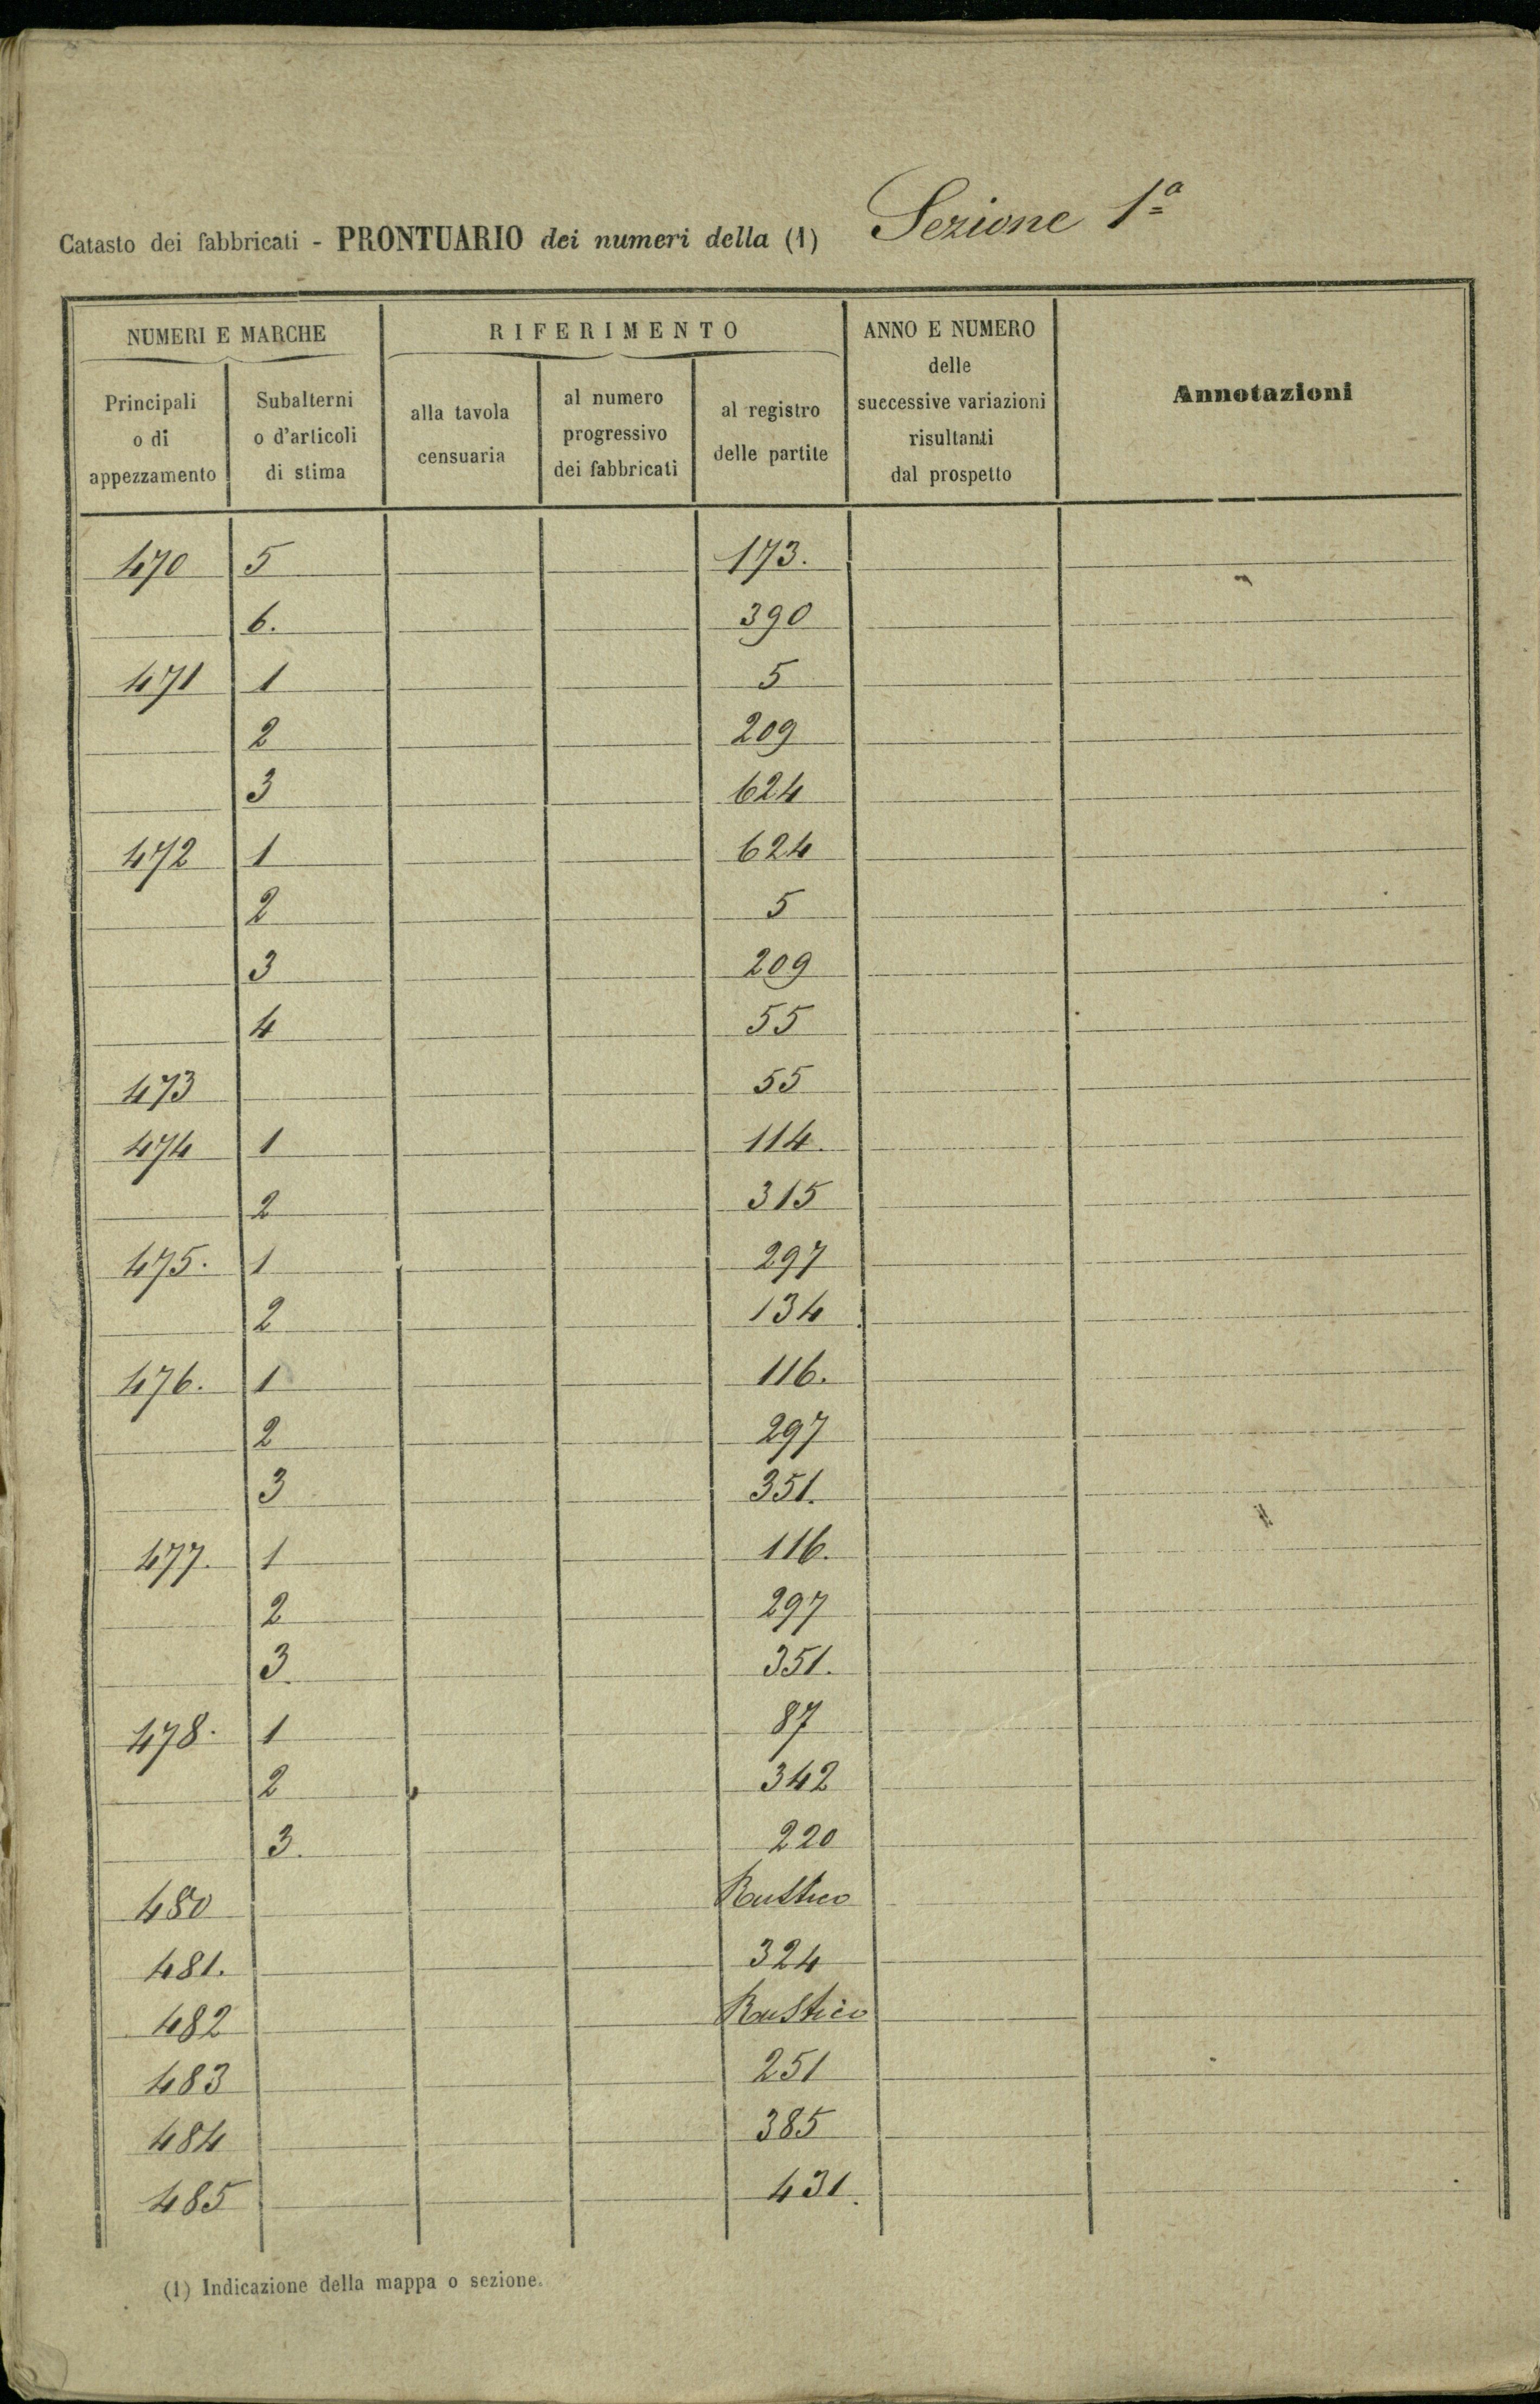 Catasto dei fabbricati - PRONTUARIO dei numeri della (1) Sezione 1ª
NUMERI E MARCHE
Principali o di appezzamento
Subalterni o d'articoli di stima
RIFERIMENTO
alla tavola censuaria
al numero progressivo dei fabbricati
al registro delle partite
ANNO E NUMERO delle successive variazioni risultanti dal prospetto
Annotazioni
470 5 173.
6. 390
471 1 5
2 209
3 624
472 1 624
2 5
3 209
4 55
473 55
474 1 114.
2 315
475. 1 297
2 134
476. 1 116.
2 297
3 351.
477. 1 116.
2 297
3. 351.
478. 1 87
2 342
3. 220
480 Rustico
481. 324
482 Rustico
483 251
484 385
485 431.
(1) Indicazione della mappa o sezione.